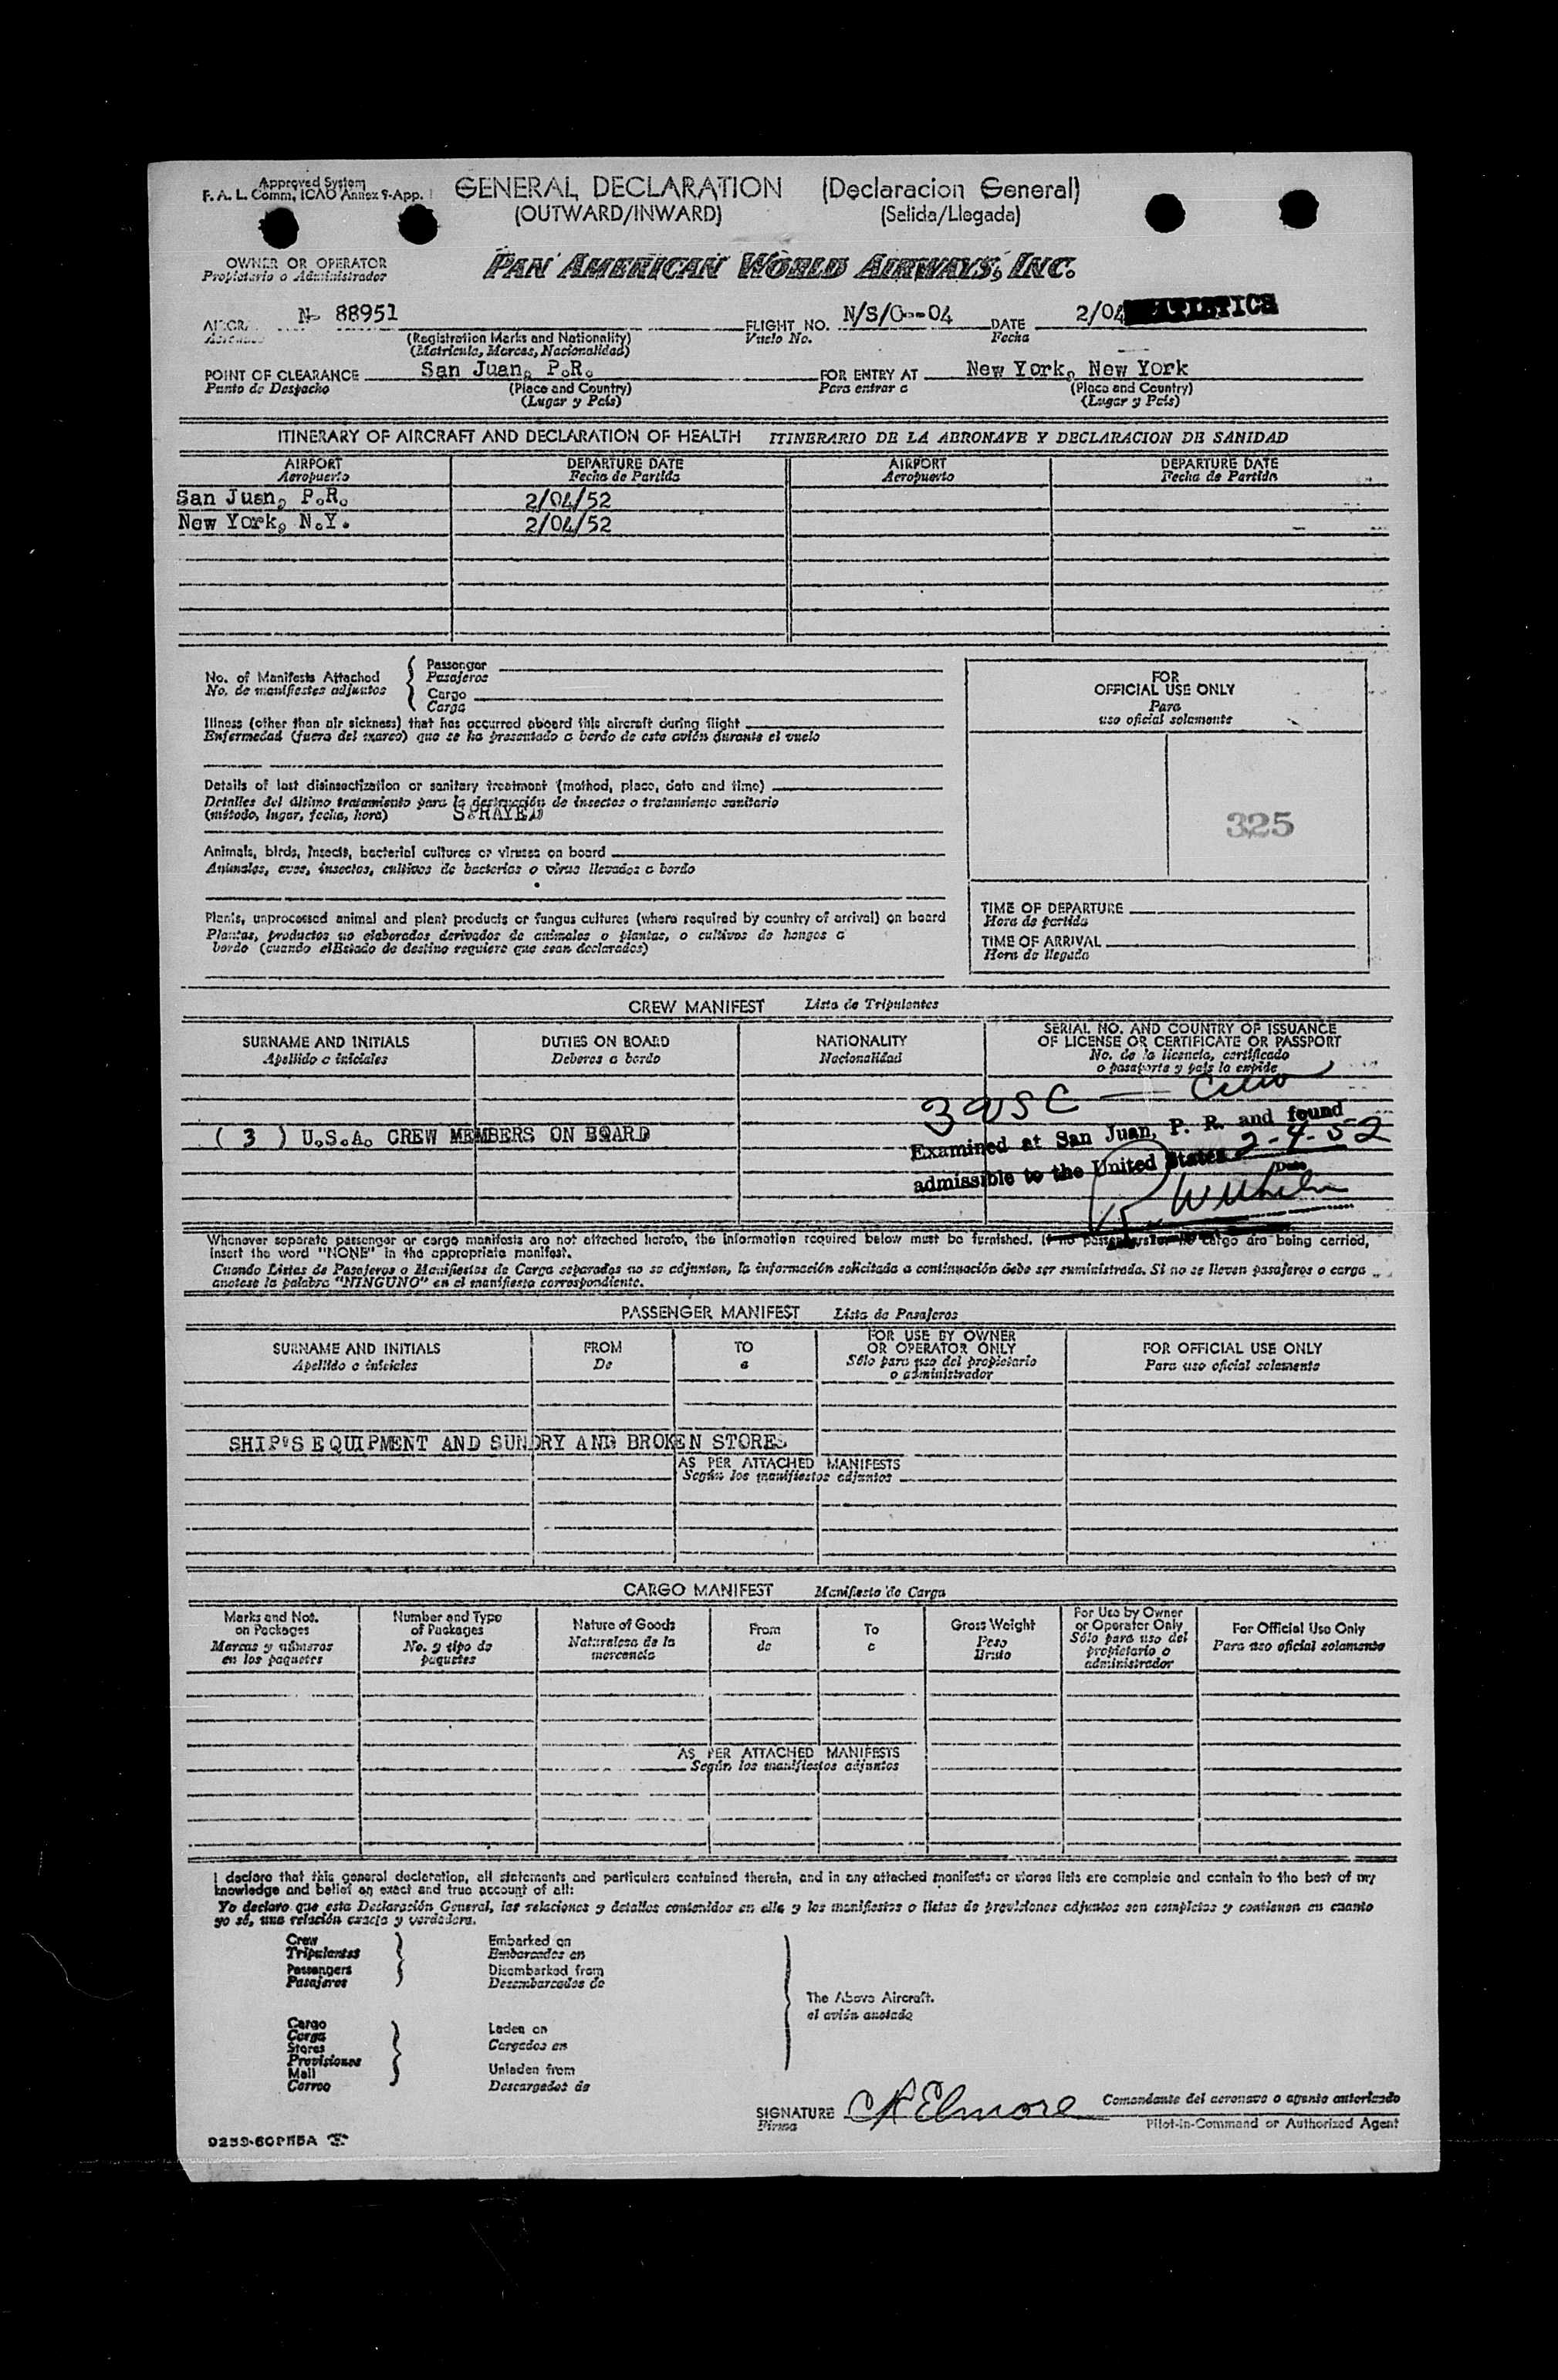 Approved System
F. A. L. Comm, ICAO Annex 9-App. I
GENERAL DECLARATION (Declaracion General)
(OUTWARD/INWARD) (Salida/Llegada)
OWNER OR OPERATOR
Propietario o Administrador
PAN AMERICAN WORLD AIRWAYS, INC.
N- 88951 FLIGHT NO. N/S/O--04 DATE 2/04
Vuelo No. Fecha
(Registration Marks and Nationality)
(Matricula, Marcas, Nacionalidad)
POINT OF CLEARANCE San Juan, P.R. FOR ENTRY AT New York, New York
Punto de Despacho (Place and Country) Para entrar a (Place and Country)
(Lugar y País) (Lugar y País)
ITINERARY OF AIRCRAFT AND DECLARATION OF HEALTH ITINERARIO DE LA AERONAVE Y DECLARACION DE SANIDAD
AIRPORT DEPARTURE DATE AIRPORT DEPARTURE DATE
Aeropuerto Fecha de Partida Aeropuerto Fecha de Partida
San Juan, P.R. 2/04/52
New York, N.Y. 2/04/52
No. of Manifests Attached
No. de manifiestos adjuntos
Passenger
Pasajeros
Cargo
Carga
FOR
OFFICIAL USE ONLY
Para
uso oficial solamente
Illness (other than air sickness) that has occurred aboard this aircraft during flight
Enfermedad (fuera del mareo) que se ha presentado a bordo de este avión durante el vuelo
Details of last disinsectization or sanitary treatment (method, place, date and time)
Detalles del último tratamiento para la destrucción de insectos o tratamiento sanitario
(método, lugar, fecha, hora) SPRAYED
325
Animals, birds, insects, bacterial cultures or viruses on board
Animales, aves, insectos, cultivos de bacterias o virus llevados a bordo
Plants, unprocessed animal and plant products or fungus cultures (where required by country of arrival) on board
Plantas, productos no elaborados derivados de animales o plantas, o cultivos de hongos a
bordo (cuando elEstado de destino requiere que sean declarados)
TIME OF DEPARTURE
Hora de partida
TIME OF ARRIVAL
Hora de llegada
CREW MANIFEST Lista de Tripulantes
SURNAME AND INITIALS DUTIES ON BOARD NATIONALITY SERIAL NO. AND COUNTRY OF ISSUANCE
OF LICENSE OR CERTIFICATE OR PASSPORT
Apellido e iniciales Deberes a bordo Nacionalidad No. de la licencia, certificado
o pasaporte y país la expide
3 USC — Crew
( 3 ) U.S.A. CREW MEMBERS ON BOARD
Examined at San Juan, P. R. and found
admissible to the United States 2-4-52
Date
Wilhelm
Whenever separate passenger or cargo manifests are not attached hereto, the information required below must be furnished. If no passengers or no cargo are being carried,
insert the word "NONE" in the appropriate manifest.
Cuando Listas de Pasajeros o Manifiestos de Carga separados no se adjunten, la información solicitada a continuación debe ser suministrada. Si no se lleven pasajeros o carga
anotese la palabra "NINGUNO" en el manifiesto correspondiente.
PASSENGER MANIFEST Lista de Pasajeros
SURNAME AND INITIALS FROM TO FOR USE BY OWNER
OR OPERATOR ONLY FOR OFFICIAL USE ONLY
Apellido e iniciales De a Sólo para uso del propietario
o administrador Para uso oficial solamente
SHIP'S EQUIPMENT AND SUNDRY AND BROKEN STORES
AS PER ATTACHED MANIFESTS
Según los manifiestos adjuntos
CARGO MANIFEST Manifiesto de Carga
Marks and Nos.
on Packages
Marcas y números
en los paquetes
Number and Type
of Packages
No. y tipo de
paquetes
Nature of Goods
Naturaleza de la
mercancía
From
de
To
a
Gross Weight
Peso
Bruto
For Use by Owner
or Operator Only
Sólo para uso del
propietario o
administrador
For Official Use Only
Para uso oficial solamente
AS PER ATTACHED MANIFESTS
Según los manifiestos adjuntos
I declare that this general declaration, all statements and particulars contained therein, and in any attached manifests or stores lists are complete and contain to the best of my
knowledge and belief an exact and true account of all:
Yo declaro que esta Declaración General, las relaciones y detalles contenidos en ella y los manifiestos o listas de provisiones adjuntos son completos y contienen en cuanto
yo sé, una relación exacta y verdadera.
Crew
Tripulantes
Passengers
Pasajeros
Embarked on
Embarcados en
Disembarked from
Desembarcados de
The Above Aircraft.
el avión anotado
Cargo
Carga
Stores
Provisiones
Mail
Correo
Laden on
Cargados en
Unladen from
Descargados de
SIGNATURE CR Elmore Comandante del aeronave o agente autorizado
Firma Pilot-in-Command or Authorized Agent